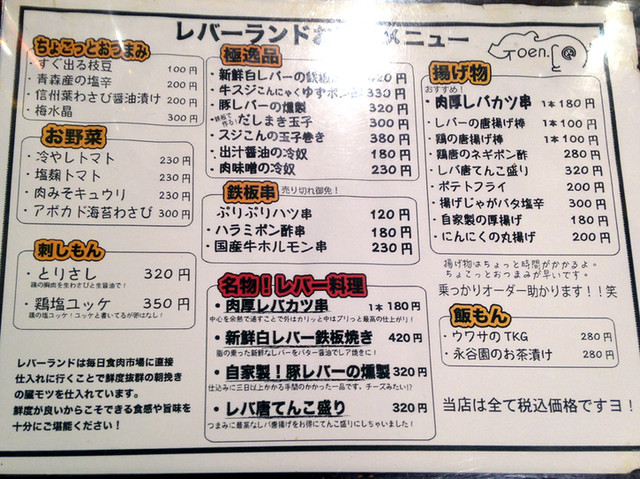 レバーランドお メニュー
Goen.
ちょこっとおつまみ
・すぐ出る枝豆 100円
・青森産の塩辛 200円
・信州葉わさび醤油漬け 200円
・梅水晶 300円
お野菜
・冷やしトマト 230円
・塩麹トマト 230円
・肉みそキュウリ 230円
・アボカド海苔わさび 300円
刺しもん
・とりさし 320円
鶏の胸肉を生わさびと生醤油で!
・鶏塩ユッケ 350円
鶏の塩ユッケ!ユッケと書いてるが卵はなし!
レバーランドは毎日食肉市場に直接
仕入れに行くことで鮮度抜群の朝挽き
の臓モツを仕入れています。
鮮度が良いからこそできる食感や旨味を
十分にご堪能ください!
極逸品
・新鮮白レバーの鉄板 20円
・牛スジこんにゃくゆずポン酢 330円
・豚レバーの燻製 320円
・鉄板で作る!だしまき玉子 300円
・スジこんの玉子巻き 380円
・出汁醤油の冷奴 180円
・肉味噌の冷奴 230円
鉄板串 売り切れ御免!
・ぷりぷりハツ串 120円
・ハラミポン酢串 180円
・国産牛ホルモン串 230円
名物!レバー料理
・肉厚レバカツ串 1本180円
中心を余熱で通すことで外はカリッと中はプリっと最高の仕上がり!
・新鮮白レバー鉄板焼き 420円
脂の乗った新鮮なレバーをバター醤油でレア焼きに!
・自家製!豚レバーの燻製 320円
仕込みに三日以上かかる手間のかかった一品です。チーズみたい!?
・レバ唐てんこ盛り 320円
つまみに最高なレバ唐揚げをお得にてんこ盛りにしちゃいました!
揚げ物
おすすめ!
・肉厚レバカツ串 1本180円
・レバーの唐揚げ棒 1本100円
・鶏の唐揚げ棒 1本100円
・鶏唐のネギポン酢 280円
・レバ唐てんこ盛り 320円
・ポテトフライ 200円
・揚げじゃがバタ塩辛 300円
・自家製の厚揚げ 180円
・にんにくの丸揚げ 200円
揚げ物はちょっと時間がかかるよ。
ちょこっとおつまみが早いです。
乗っかりオーダー助かります!!笑
飯もん
・ウワサのTKG 280円
・永谷園のお茶漬け 280円
当店は全て税込価格ですヨ!